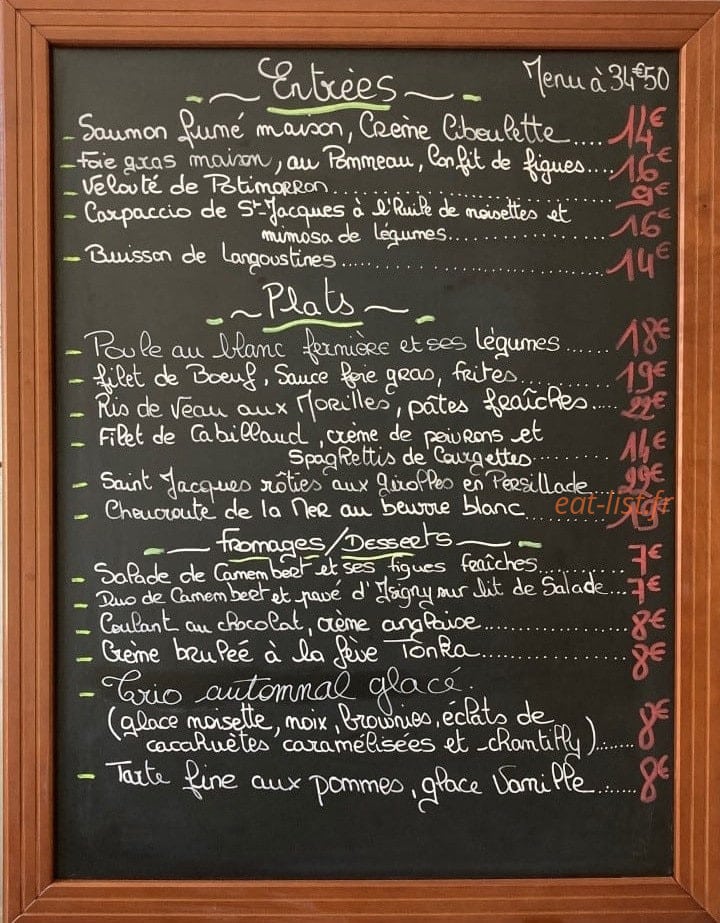 Entrées
Menu à 34€50
Saumon fumé maison, Crème Ciboulette.... 14€
Foie gras maison, au Pommeau, Confit de figues.... 16€
Velouté de Potimarron.... 9€
Carpaccio de St-Jacques à l'huile de noisettes et
mimosa de légumes.... 16€
Buisson de Langoustines.... 14€
Plats
Poule au blanc fermière et ses légumes...... 18€
filet de Boeuf, Sauce foie gras, frites.... 19€
Ris de Veau aux Morilles, pâtes fraîches.... 22€
Filet de Cabillaud, crème de poivrons et
Spaghettis de Courgettes.... 14€
Saint Jacques rôties aux girolles en Persillade
Choucroute de la Mer au beurre blanc....
eat-list.fr
fromages/Desserts
Salade de Camembert et ses figues fraîches.... 7€
Duo de Camembert et pavé d'Isigny sur lit de Salade... 7€
Coulant au chocolat, crème anglaise.... 8€
Crème brulée à la fève Tonka.... 8€
Trio automnal glacé.
(glace noisette, noix, brownies, éclats de
cacahuètes caramélisées et chantilly)....... 8€
Tarte fine aux pommes, glace Vanille....... 8€